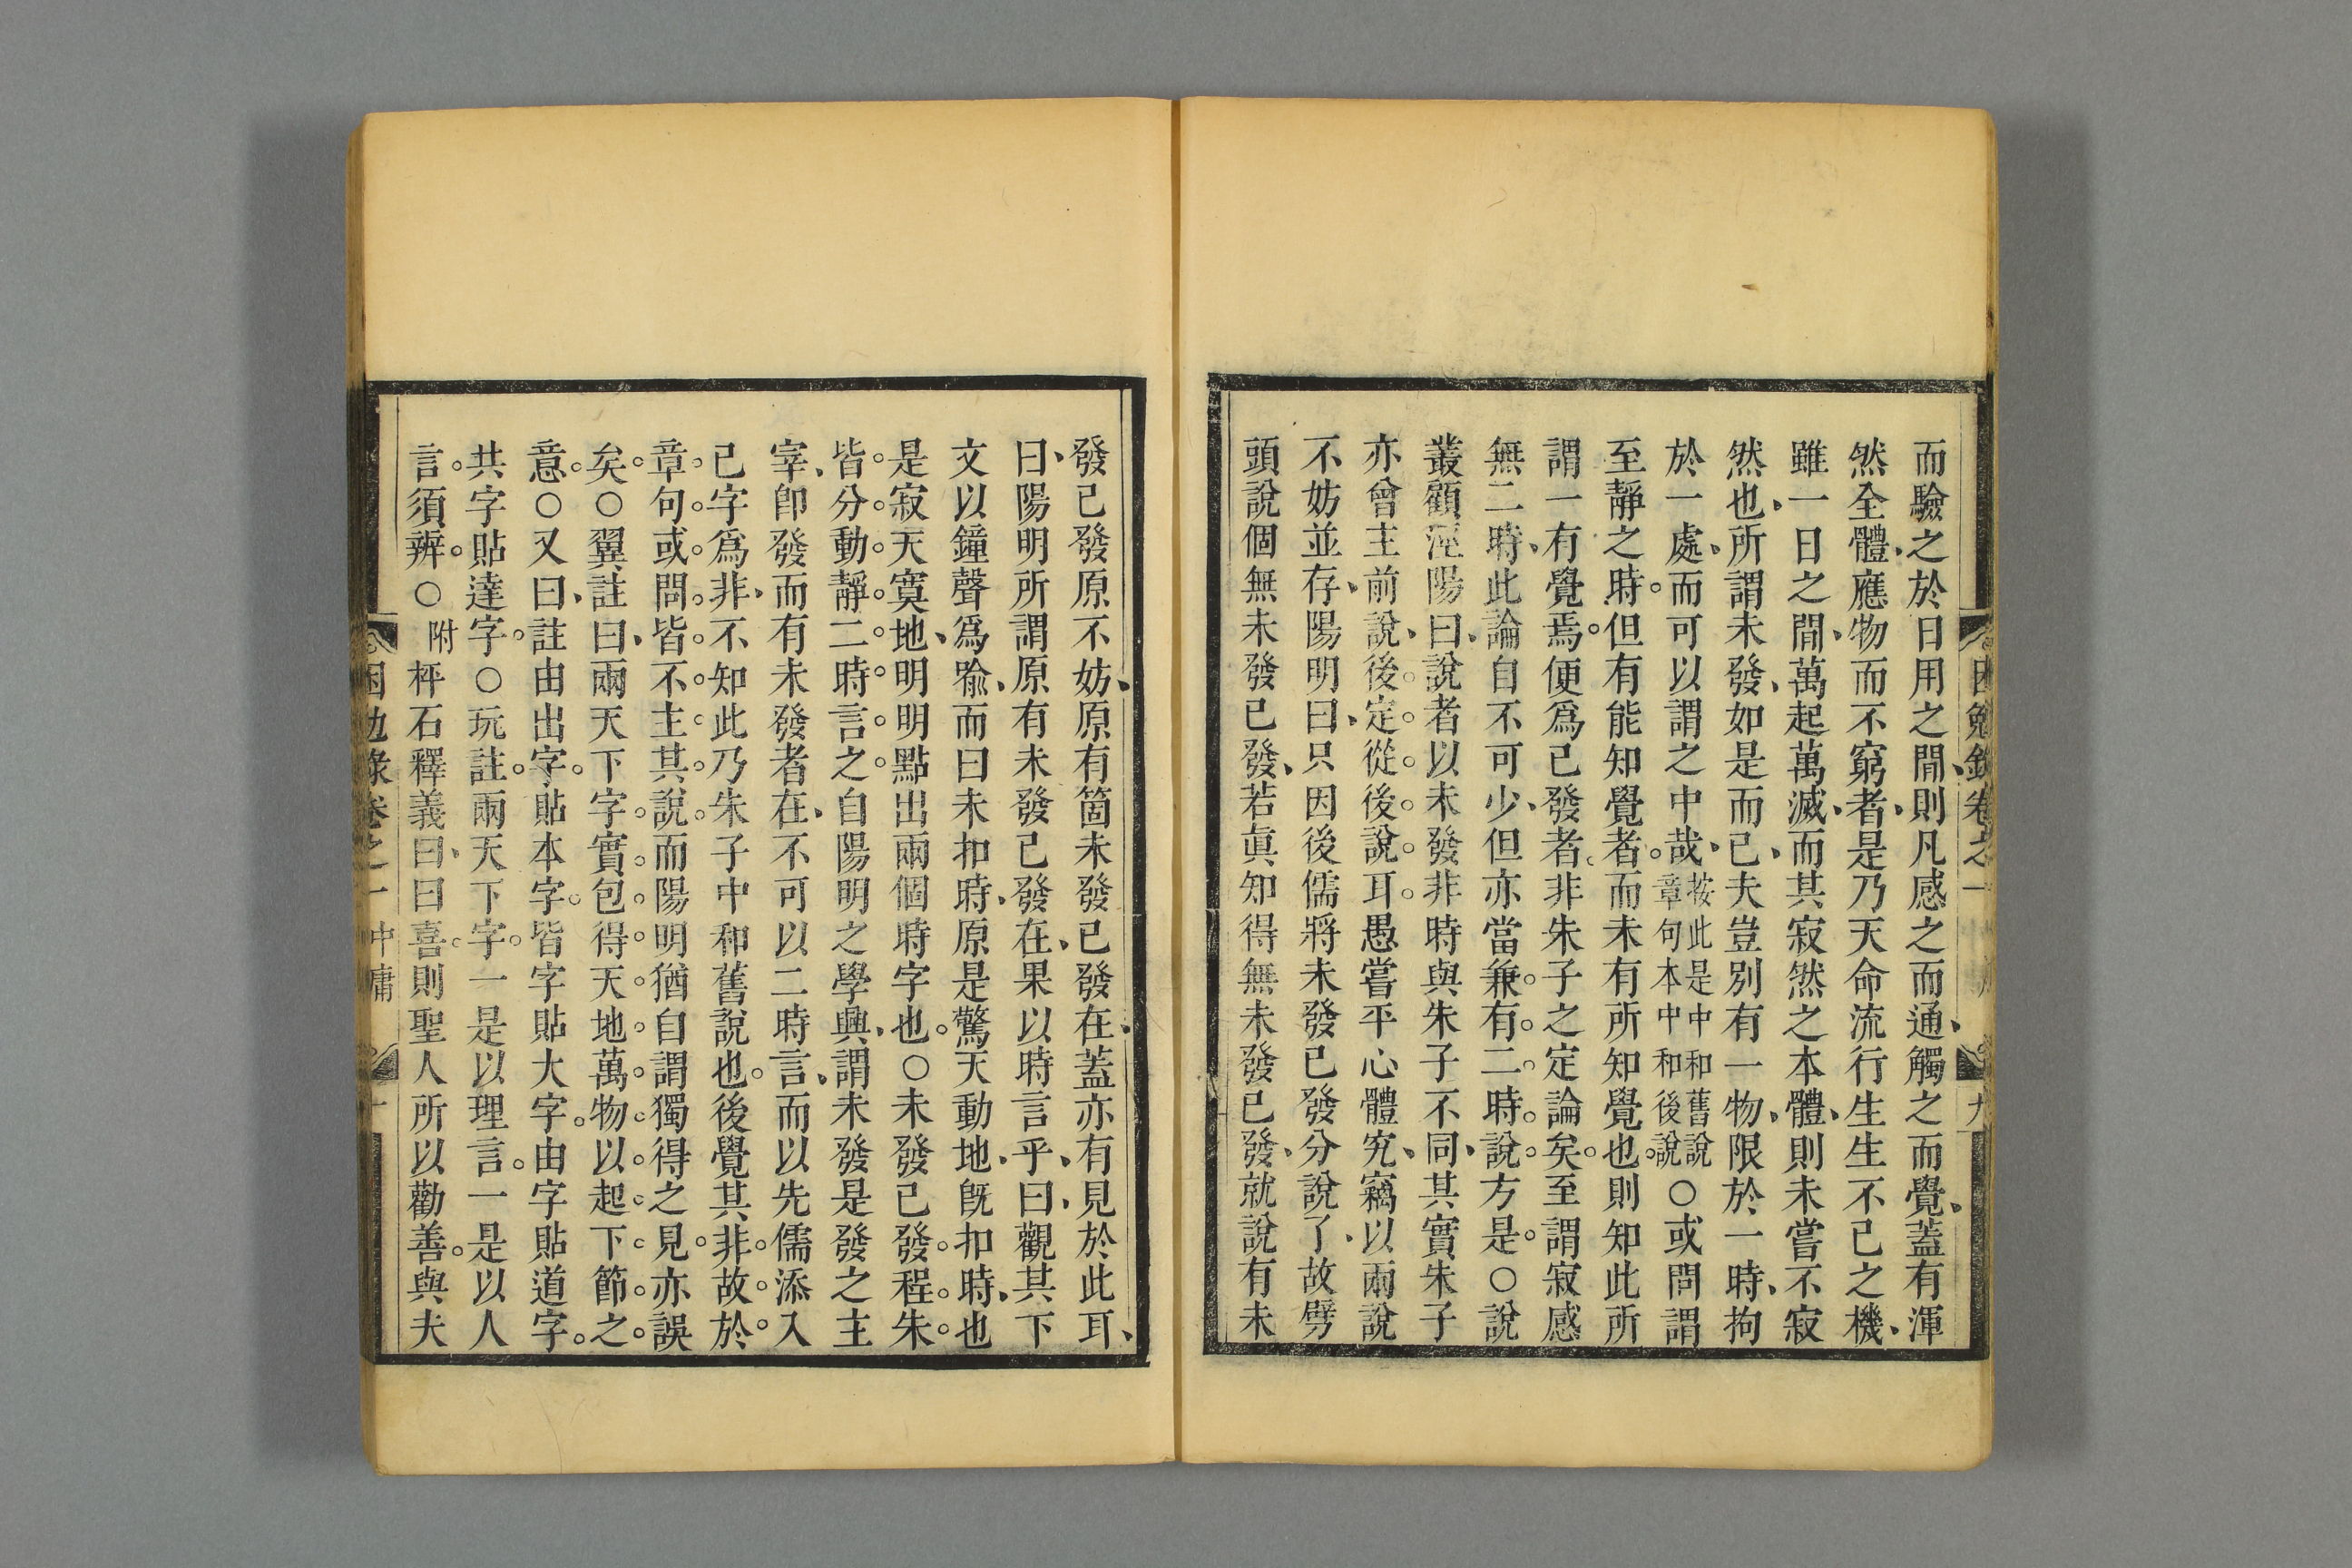 而驗之於日用之間、則凡感之而通、觸之而覺、蓋有渾
然全體、應物而不窮者、是乃天命流行生生不已之機、
雖一日之間、萬起萬滅、而其寂然之本體、則未嘗不寂
然也、所謂未發、如是而已、夫豈別有一物、限於一時、拘
於一處、而可以謂之中哉、按此是中和舊說章句本中和後說○或問謂
至靜之時。但有能知覺者。而未有所知覺也。則知此所
謂一有覺焉。便爲已發者。非朱子之定論矣。至謂寂感
無二時、此論自不可少、但亦當兼有二時說方是。○說
叢顧涇陽曰、說者以未發非時與朱子不同、其實朱子
亦曾主前說、後定從後說耳。愚嘗平心體究、竊以兩說
不妨並存、陽明曰、只因後儒將未發已發分說了、故劈
頭說個無未發已發、若眞知得無未發已發、就說有未
發已發原不妨、原有箇未發已發在、蓋亦有見於此耳、
曰、陽明所謂原有未發已發在、果以時言乎、曰、觀其下
文以鐘聲爲喩、而曰未扣時、原是驚天動地、旣扣時、也
是寂天寞地、明明點出兩個時字也。○未發已發。程朱
皆分動靜二時言之。自陽明之學興、謂未發是發之主
宰、卽發而有未發者在、不可以二時言、而以先儒添入
已字爲非、不知此乃朱子中和舊說也。後覺其非。故於
章句或問皆不主其說。而陽明猶自謂獨得之見。亦誤
矣。○翼註曰、兩天下字實包得天地萬物以起下節之
意。○又曰、註由出字。貼本字。皆字貼大字。由字貼道字。
共字貼達字。○玩註。兩天下字。一是以理言。一是以人
言。須辨。○附枰石釋義曰、曰喜。則聖人所以勸善。與夫
困勉錄卷之一
九
困勉錄卷之一 中庸 十